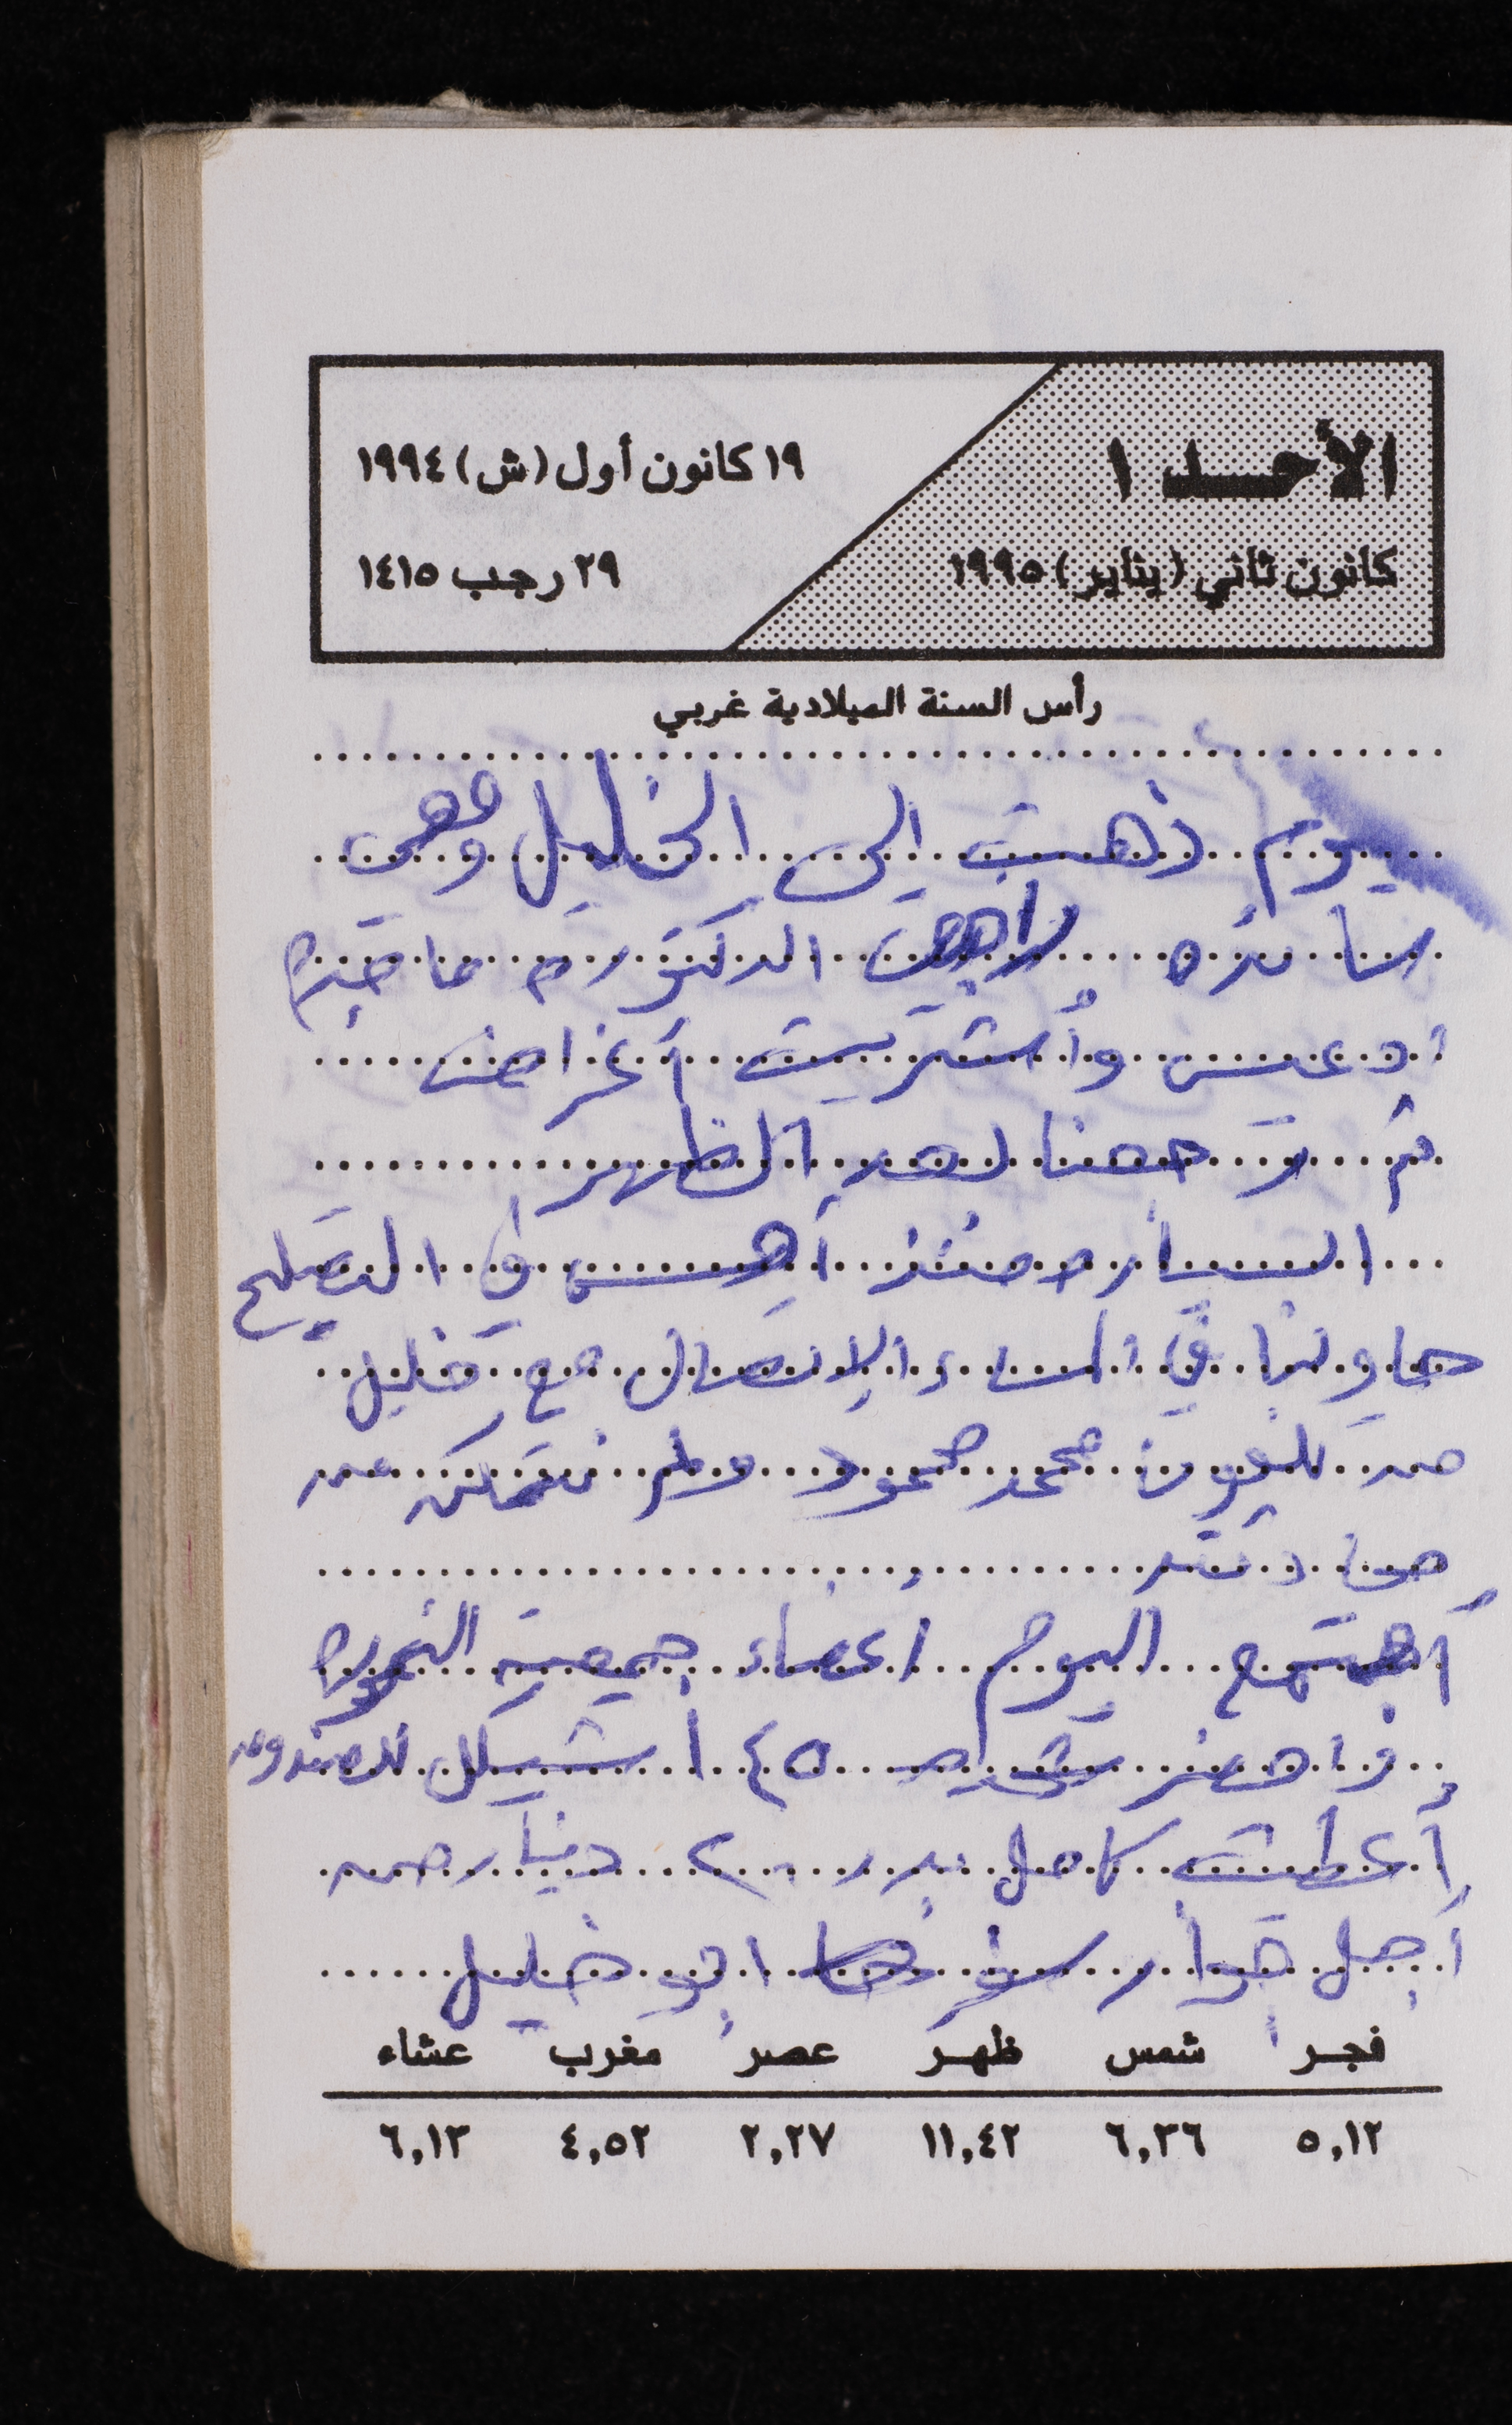 الأحد ١
كانون ثاني (يناير) ١٩٩٥
١٩ كانون أول (ش) ١٩٩٤
٢٩ رجب ١٤١٥
رأس السنة الميلادية غربي
يوم ذهبت الى الخليل ومعي
راجعت الدكتوره ماجده
ادعيس وأشتريت أغراض
ثم رجعنا بعد الظهر
السياره منذ أمس في التصليح
حاولنا في المساء الإتصال مع خليل
من تلفون محمد محمود ولم نتمكن من
محادثته
أجتمع اليوم اعضاء جمعية
٤٥ شيكل للصندوق
أعطيت كامل بدر ٢٠٠ دينار من
أجل جواز سفر ابو خليل
فجر شمس ظهر عصر مغرب عشاء
٥,١٢ ٦,٣٦ ١١,٤٢ ٢,٢٧ ٤,٥٢ ٦,١٣